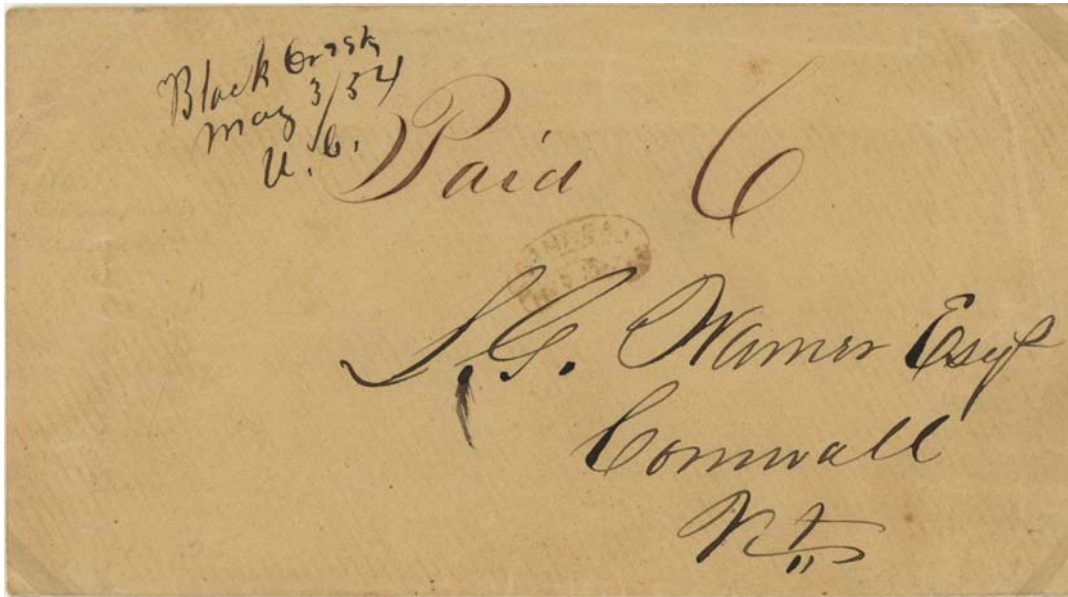 Black Creek
May 3/54
U.C.
Paid 6
S. G. Warner Esqr
Cornwall
Vt